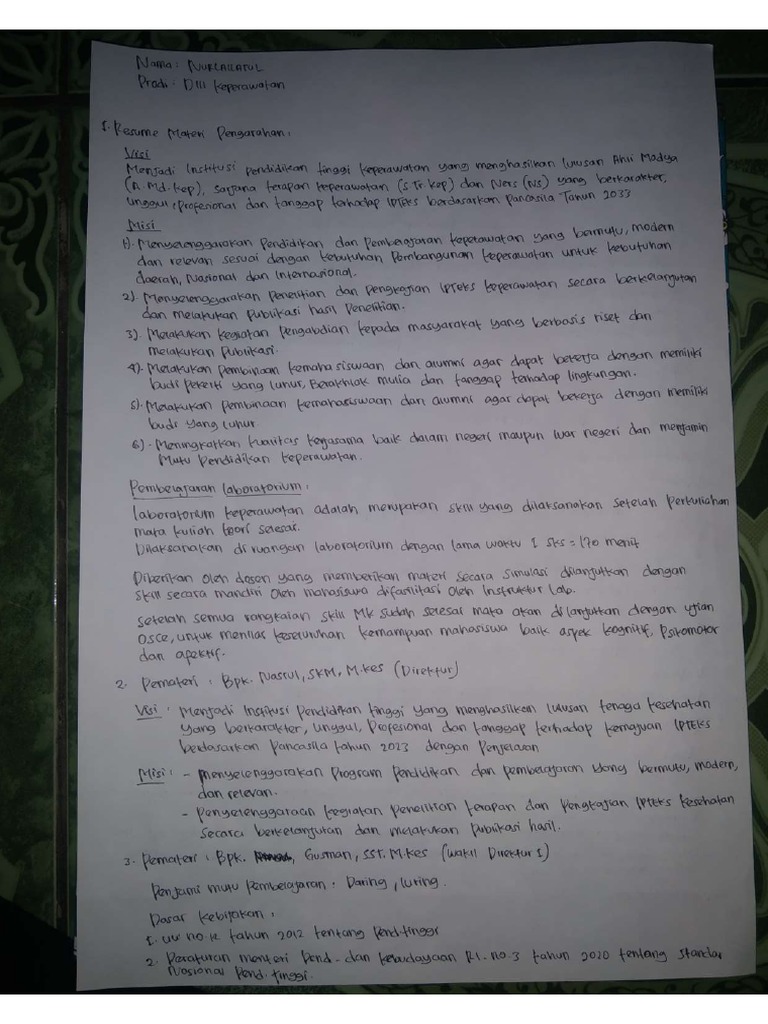 Nama : NURLAILATUL
Prodi : DIII Keperawatan
1. Resume Materi Pengarahan :
Visi
Menjadi Institusi pendidikan tinggi keperawatan yang menghasilkan lulusan Ahli Madya
(A.Md.Kep), sarjana terapan keperawatan (S.Tr.Kep) dan Ners (Ns) yang berkarakter,
unggul, profesional dan tanggap terhadap IPTEKS berdasarkan Pancasila Tahun 2033
Misi
1). Menyelenggarakan Pendidikan dan Pembelajaran keperawatan yang bermutu, modern
dan relevan sesuai dengan kebutuhan Pembangunan keperawatan untuk kebutuhan
daerah, Nasional dan Internasional.
2). Menyelenggarakan Penelitian dan pengkajian IPTEKS keperawatan secara berkelanjutan
dan melakukan Publikasi hasil Penelitian.
3). Melakukan kegiatan Pengabdian kepada masyarakat yang berbasis riset dan
melakukan Publikasi.
4). Melakukan Pembinaan kemahasiswaan dan alumni agar dapat bekerja dengan memiliki
budi Pekerti yang luhur, Berakhlak mulia dan tanggap terhadap lingkungan.
5). Melakukan Pembinaan kemahasiswaan dan alumni agar dapat bekerja dengan memiliki
budi yang luhur
6). Meningkatkan kualitas kerjasama baik dalam negeri maupun luar negeri dan menjamin
Mutu Pendidikan keperawatan.
Pembelajaran laboratorium :
laboratorium keperawatan adalah merupakan skill yang dilaksanakan setelah Perkuliahan
mata kuliah teori selesai.
Dilaksanakan di ruangan laboratorium dengan lama waktu 1 sks = 170 menit
Diberikan oleh dosen yang memberikan materi secara simulasi dilanjutkan dengan
skill secara mandiri oleh mahasiswa difasilitasi oleh Instruktur Lab.
setelah semua rangkaian skill MK sudah selesai maka akan dilanjutkan dengan ujian
OSCE, untuk menilai keseluruhan kemampuan mahasiswa baik aspek kognitif, Psikomotor
dan afektif.
2. Pemateri : Bpk. Nasrul, SKM, M.Kes (Direktur)
Visi : Menjadi Institusi Pendidikan tinggi yang menghasilkan lulusan tenaga kesehatan
yang berkarakter, unggul, Profesional dan tanggap terhadap kemajuan IPTEKS
berdasarkan Pancasila tahun 2023 dengan Penjelasan
Misi : - menyelenggarakan Program Pendidikan dan pembelajaran yang bermutu, modern,
dan relevan.
- Penyelenggaraan kegiatan Penelitian terapan dan Pengkajian IPTEKS kesehatan
secara berkelanjutan dan melakukan Publikasi hasil.
3. Pemateri : Bpk. Gusman, SST. M.Kes (Wakil Direktur 1)
Penjami mutu Pembelajaran : Daring, luring.
Dasar kebijakan :
1. UU no.12 tahun 2012 tentang Pend.tinggi
2. Peraturan menteri Pend- dan kebudayaan RI. no.3 tahun 2020 tentang Standar
Nasional Pend. tinggi.